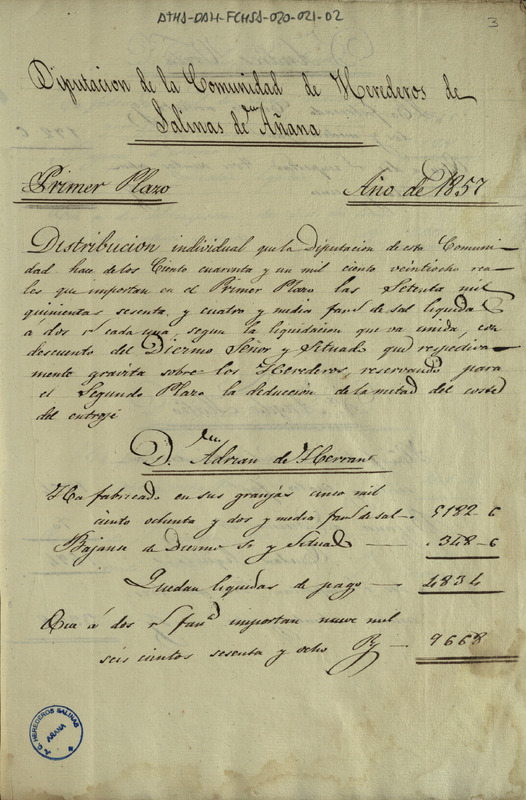 ATHA-DAH-FCHSA-020-021-02
3
Diputacion de la Comunidad de Herederos de
Salinas de Añana
Primer Plazo Año de 1857
Distribucion individual que la Diputacion de esta Comuni-
dad hace de los Ciento cuarenta y un mil ciento veintiocho rea-
les que importan en el Primer Plazo las Setenta mil
quinientas sesenta y cuatro y media fan.s de sal liquida
a dos r.s cada una, segun la liquidacion que va unida, con
descuento del Diezmo Señor y Situado que respectiva-
mente gravita sobre los Herederos, reservando para
el Segundo Plazo la deduccion de la metad del coste
del entroje
D. Adrian de Herran
Ha fabricado en sus granjas cinco mil
ciento ochenta y dos y media fan.s de sal 5182-6
Bajanse de Diezmo Sr y Situado 348-6
Quedan liquidas de pago 4834
Que á dos r.s fan.a importan nueve mil
seis cientos sesenta y ocho 9668
C. HEREDEROS SALINAS
AÑANA